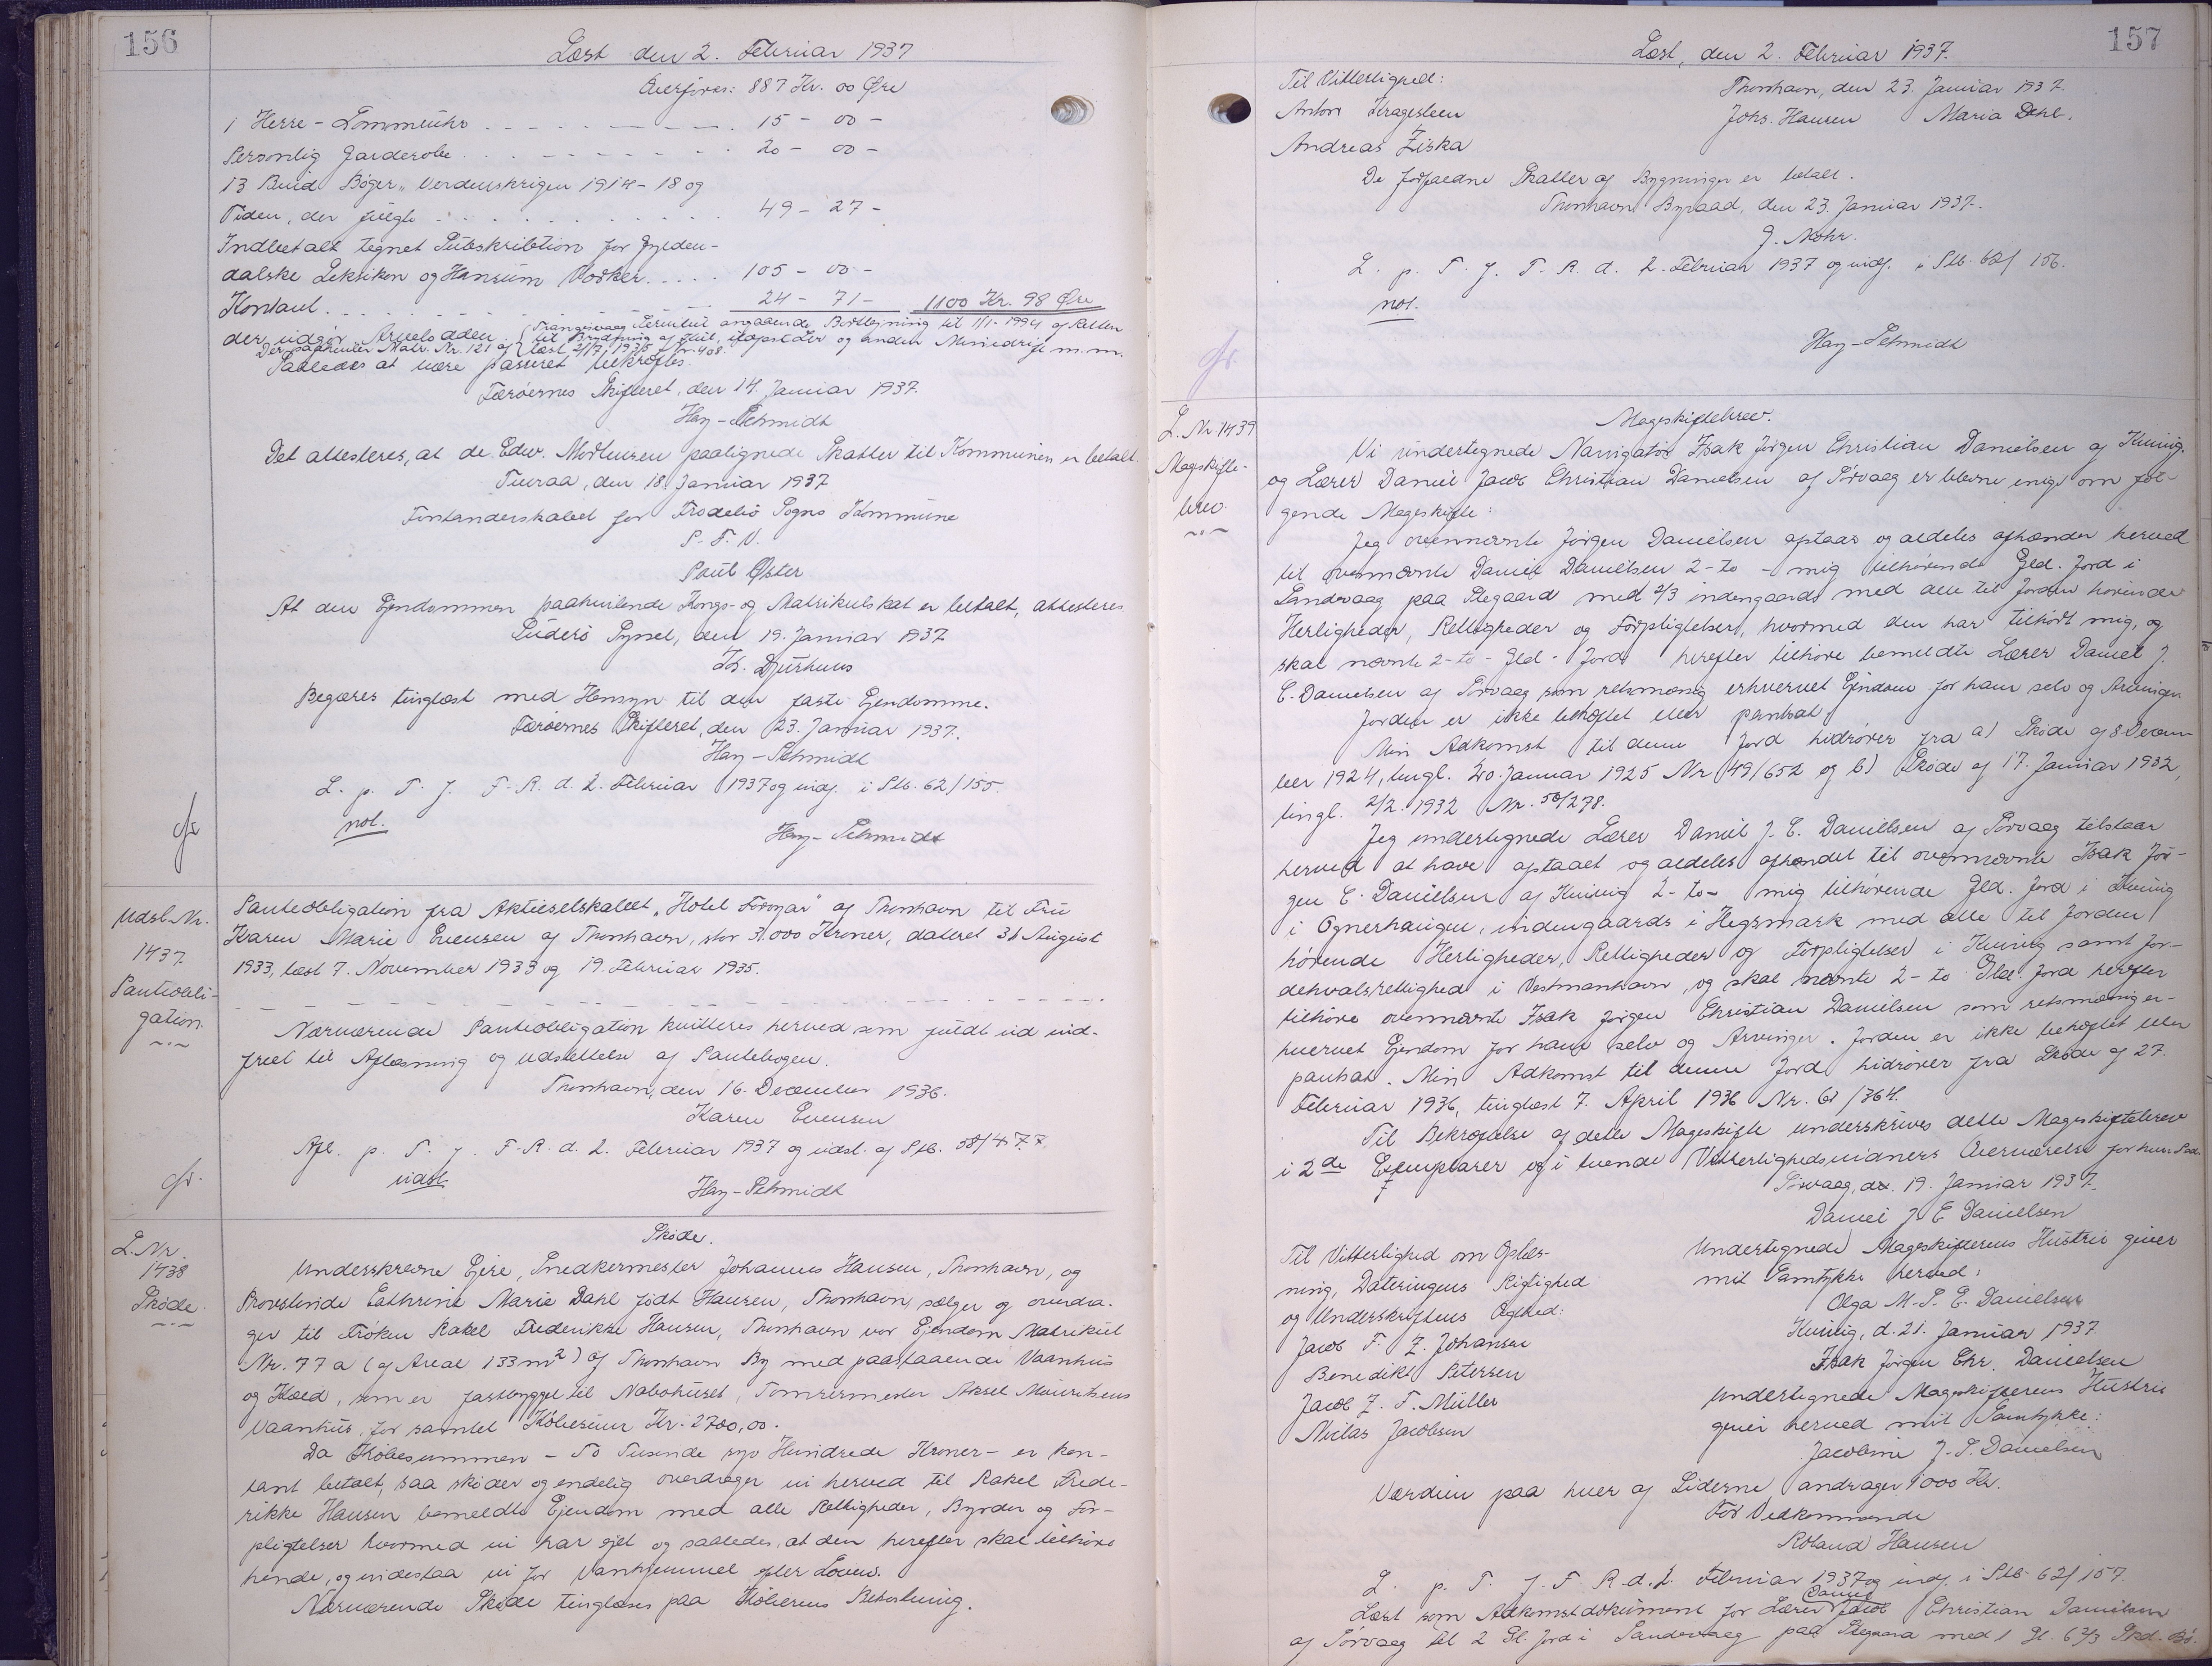 156
Læst den 2. Februar 1937
Overføres: 887 Kr. 00 Øre
1 Herre-Lommeuhr . . . . 15 - 00 -
Personlig Garderobe . . . . 20 - 00 -
13 Bind Bøger, Verdenskrigen 1914-18 og
Tiden, der fulgte . . . . 49 - 27 -
Indbetalt tegnet Subskribtion for Gylden-
dalske Leksikon og Hamsum Værker . . . . 105 - 00 -
Kontant . . . . 24 - 71 - 1100 Kr. 98 Øre
der udgør Arvelodden
Trangisvaag Servitut angaaende Bortlejning til 1/1-1994 af Retten
Derpaahviler Matr. Nr. 121 af til Brydning af Kul, ildfast Ler og anden Minedrift m.m.
læst 2/7 1935 Nr. 408.
Saaledes at være passeret bekræftes.
Færøernes Skifteret, den 14. Januar 1937.
Hay-Schmidt
Det attesteres, at de Edw. Mortensen paalignede Skatter til Kommunen er betalt.
Tveraa, den 18. Januar 1937
Forstanderskabet for Frodebø Sogns Kommune
S. F. V.
Poul Øster
At den Ejendommen paahvilende Kongs- og Matrikulskat er betalt, attesteres
Suderø Syssel, den 19. Januar 1937
Th. Djurhuus
Begæres tinglæst med Hensyn til den faste Ejendomme.
Færøernes Skifteret, den 23. Januar 1937.
Hay-Schmidt
L. p. T. f. F. R. d. 2. Februar 1937 og indf. i Skb. 62/155.
not.
Hay-Schmidt
Udsl. Nr.
1437.
Panteobli-
gation.
Panteobligation fra Aktieselskabet "Hotel Föroyar" af Thorshavn til Fru
Karen Marie Evensen af Thorshavn, stor 31.000 Kroner, dateret 31 August
1933, læst 7. November 1933 og 19. Februar 1935.
Nærværende Panteobligation kvitteres herved som fuldt ud ind-
friet til Aflæsning og Udslettelse af Pantebogen.
Thorshavn, den 16. December 1936.
Karen Evensen
Afl. p. T. f. F. R. d. 2. Februar 1937 og udsl. af Skb. 58/457.
udsl.
Hay-Schmidt
L. Nr.
1438
Skøde.
Skøde.
Underskrevne Ejere, Snedkermester Johannes Hansen, Thorshavn, og
Provstinde Cathrine Marie Dahl født Hansen, Thorshavn, sælger og overdra-
ger til Frøken Rakel Frederikke Hansen, Thorshavn vor Ejendom Matrikul
Nr. 77 a (af Areal 133 m²) af Thorshavn By med paastaaende Vaanhus
og Kold, som er fastbygget til Nabohuset, Tømrermester Aksel Mouritsens
Vaanhus, for samlet Købesum Kr. 2700,00.
Da Købesummen - To Tusende syv Hundrede Kroner - er kon-
tant betalt, saa skøder og endelig overdrager vi herved til Rakel Frede-
rikke Hansen bemeldte Ejendom med alle Rettigheder, Byrder og For-
pligtelser hvormed vi har ejet og saaledes, at den herefter skal tilhøre
hende, og indestaa vi for Vanhjemmel efter Loven.
Nærværende Skøde tinglæses paa Køberens Bekostning.
157
Læst, den 2. Februar 1937.
Til Vitterlighed:
Anton Kragesteen
Andreas Ziska
Thorshavn, den 23. Januar 1937.
Johs. Hansen Maria Dahl.
De forfaldne Skatter af Bygningen er betalt.
Thorshavn Byraad, den 23. Januar 1937.
J. Mohr.
L. p. T. f. F. R. d. 2. Februar 1937 og indf. i Skb. 62/156.
not.
Hay-Schmidt
L. Nr. 1439
Mageskifte-
brev.
Mageskiftebrev.
Vi undertegnede Navigatør Isak Jørgen Christian Danielsen af Kvivig,
og Lærer Daniel Jacob Christian Danielsen af Sörvaag er blevne enige om föl-
gende Mageskifte:
Jeg ovennævnte Jörgen Danielsen aftaar og aldeles afhænder herved
til ovennævnte Daniel Danielsen 2-to - mig tilhørende Gld. Jord i
Sandevaag paa Stegaard med 2/3 indengaards med alle til Jorden hørende
Herligheder, Rettigheder og Forpligtelser, hvormed den har tilhørt mig, og
skal nævnte 2-to - Gld. Jord herefter tilhøre bemeldte Lærer Daniel J.
C. Danielsen af Sörvaag som retsmæssig erhvervet Ejendom for ham selv og Arvinger.
Jorden er ikke behæftet eller pantsat.
Min Adkomst til denne Jord hidrører fra a) Skøde af 8 Decem-
ber 1924, tingl. 20. Januar 1925 Nr. 49/652 og b) Skøde af 17. Januar 1932,
tingl. 2/2. 1932 Nr. 56/278.
Jeg undertegnede Lærer Daniel J. C. Daniellsen af Sörvaag tilstaar
herved at have aftaaet og aldeles afhændet til ovennævnte Isak Jör-
gen C. Danielsen af Kvivig 2-to- mig tilhørende Gld. Jord i Kvivig
i Ognerhaugen, indengaards i Hegsmark med alle til Jorden
hørende Herligheder, Rettigheder og Forpligtelser i Kvivig samt for-
dehvalsrettighed i Vestmanhavn, og skal nævnte 2-to Gld. Jord herefter
tilhøre ovennævnte Isak Jørgen Christian Danielsen som retsmæssig er-
hvervet Ejendom for ham selv og Arvinger. Jorden er ikke behæftet eller
pantsat. Min Adkomst til denne Jord hidrører fra Skøde af 27.
Februar 1936, tinglæst 7. April 1936 Nr. 61/364.
Til Bekræftelse af dette Mageskifte underskrives dette Mageskiftebrev
i 2de Exemplarer og i tvende Vitterlighedsvidners Overværelse for hver Part.
Sörvaag, d. 19. Januar 1937.
Daniel J C Danielsen
Til Vitterlighed om Oplæs-
ning, Dateringens Rigtighed
og Underskriftens Ægthed:
Jacob F. Z. Johansen
Benedikt Petersen
Jacob Z. F. Müller
Niclas Jacobsen
Undertegnede Mageskifterens Hustru giver
mit Samtykke herved:
Olga M. P. E. Danielsen
Kvivig, d. 21. Januar 1937
Isak Jörgen Chr. Danielsen
Undertegnede Mageskifterens Hustru
giver herved mit Samtykke:
Jacobine J. S. Danielsen
Værdien paa hver af Siderne andrager 1000 Kr.
For Vedkommende
Roland Hansen
L. p. T. f. F. R. d. 2. Februar 1937 og indf. i Skb. 62/157.
Læst som Adkomstdokument for Lærer Daniel Jacob Christian Danielsen
af Sörvaag til 2 Gl. Jord i Sandevaag paa Stegaara med 1 Gl. 6 2/3 Skd. Bö.